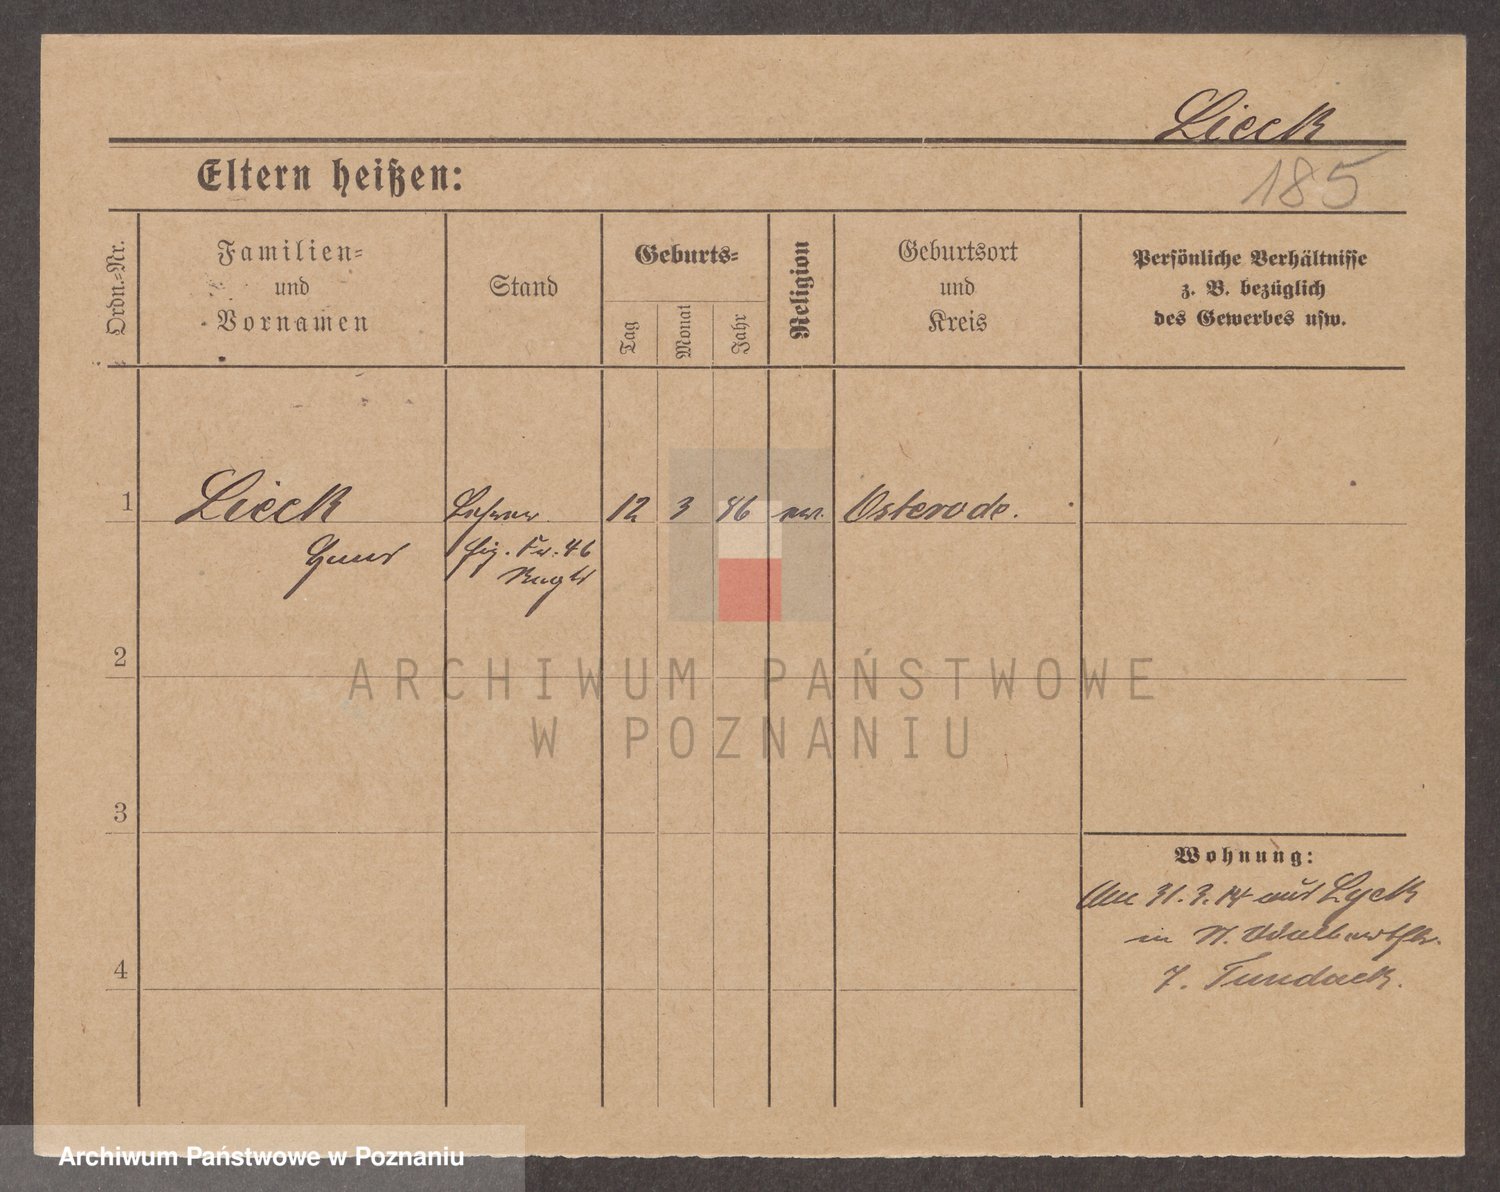 Lieck
185
Eltern heißen:
Ordn.=Nr.
Familien=
und
Vornamen
Stand
Geburts=
Tag
Monat
Jahr
Religion
Geburtsort
und
Kreis
Persönliche Verhältnisse
z. B. bezüglich
des Gewerbes usw.
1 Lieck Lehrer 12 3 86 Osterode.
46
2
ARCHIWUM PAŃSTWOWE
W POZNANIU
3
Wohnung:
31.3.14 aus Lyck
in
4
7. Tundack.
Archiwum Państwowe w Poznaniu